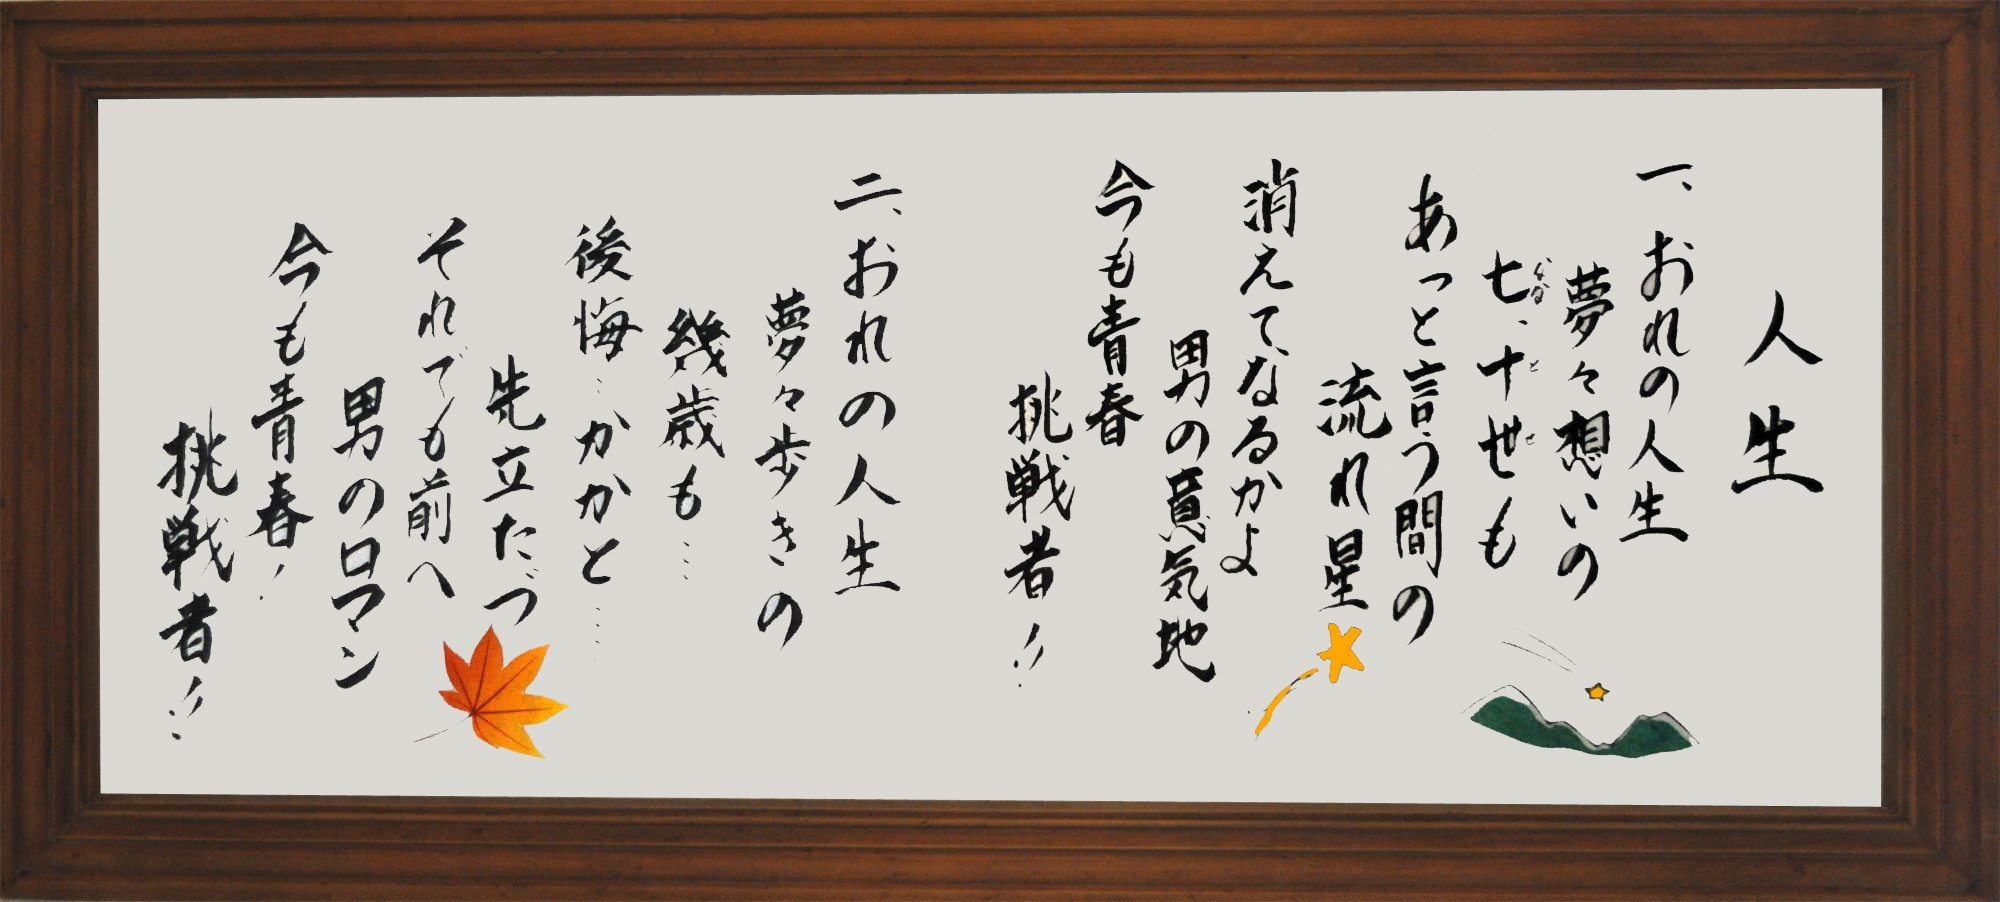 人生
一、おれの人生
夢々想いの
七、十世も
あっと言う間の
流れ星
消えてなるかよ
男の意気地
今も青春
挑戦者!!
二、おれの人生
夢々歩きの
幾歳も…
後悔…かかと……
先立たづ
それでも前へ
男のロマン
今も青春!
挑戦者!!